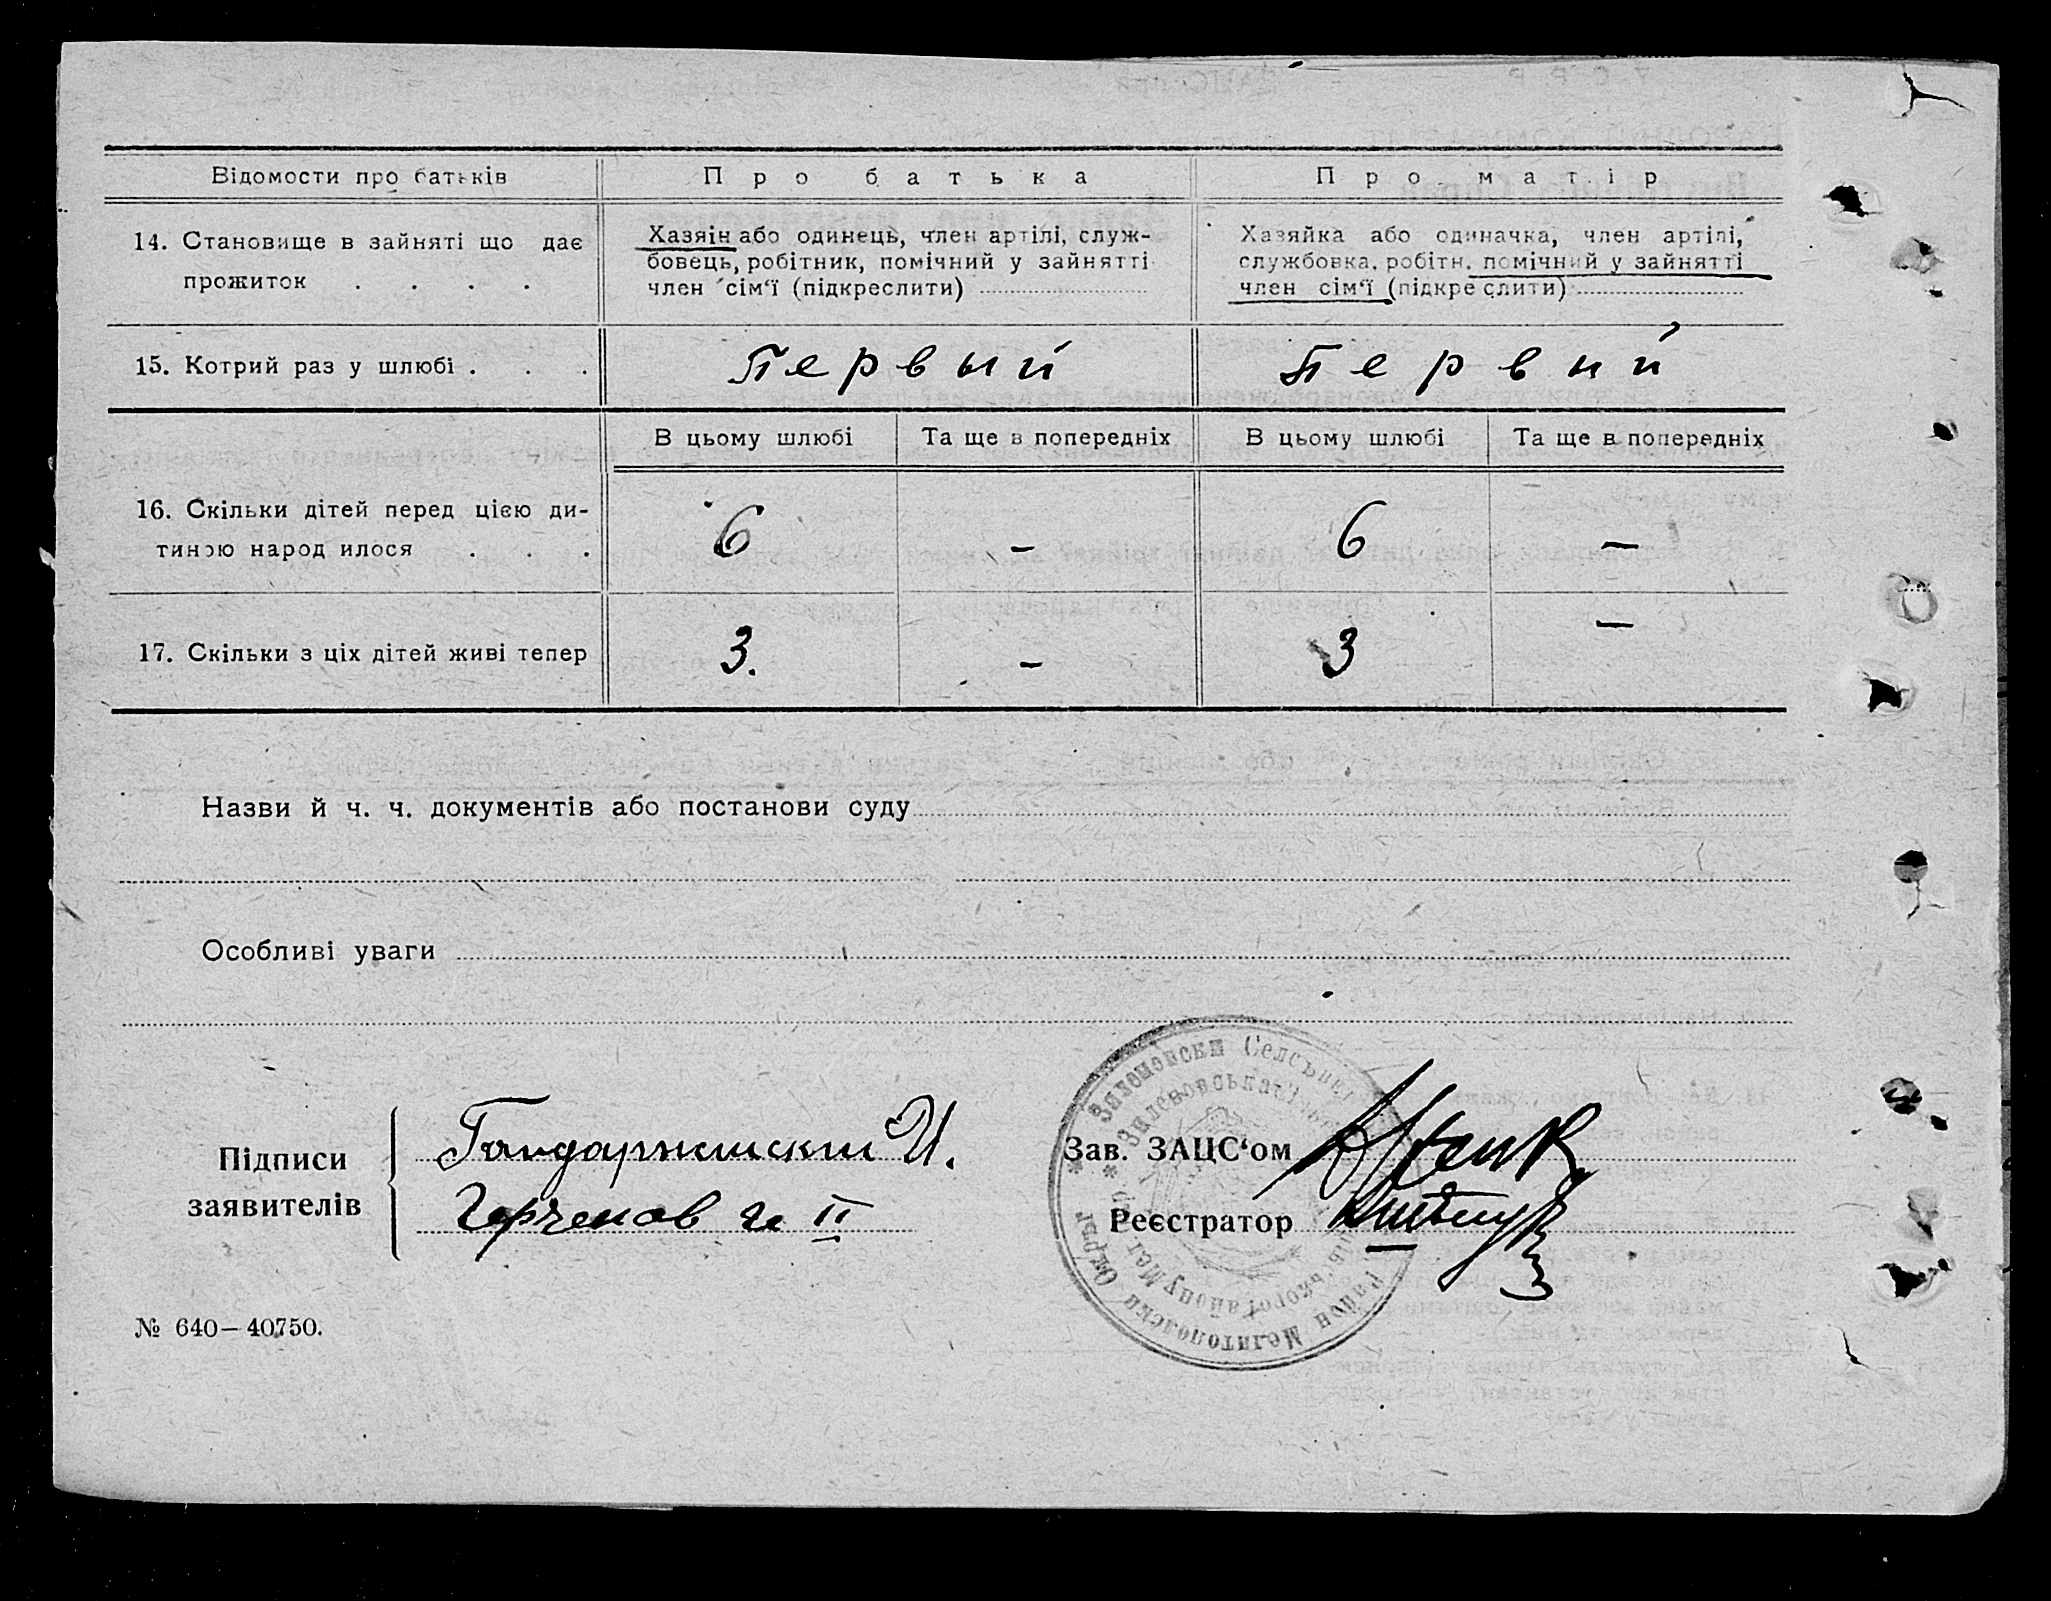 Відомости про батьків
Про батька
Про матір
14. Становище в зайняті що дає
прожиток . . . .
Хазяін або одинець, член артілі, служ-
бовець, робітник, помічний у зайнятті
член сім'ї (підкреслити)
Хазяйка або одиначка, член артілі,
службовка, робітн. помічний у зайнятті
член сім'ї (підкреслити)
15. Котрий раз у шлюбі . . .
Первый
Первий
В цьому шлюбі
Та ще в попередніх
В цьому шлюбі
Та ще в попередніх
16. Скільки дітей перед цією ди-
тиною народилося . . .
6
–
6
–
17. Скільки з ціх дітей живі тепер
3.
–
3
–
Назви й ч. ч. документів або постанови суду
Особливі уваги
Підписи
заявителів
И.
II
Зав. ЗАЦС'ом
Реєстратор
Мелитополски Округ
Район
№ 640–40750.